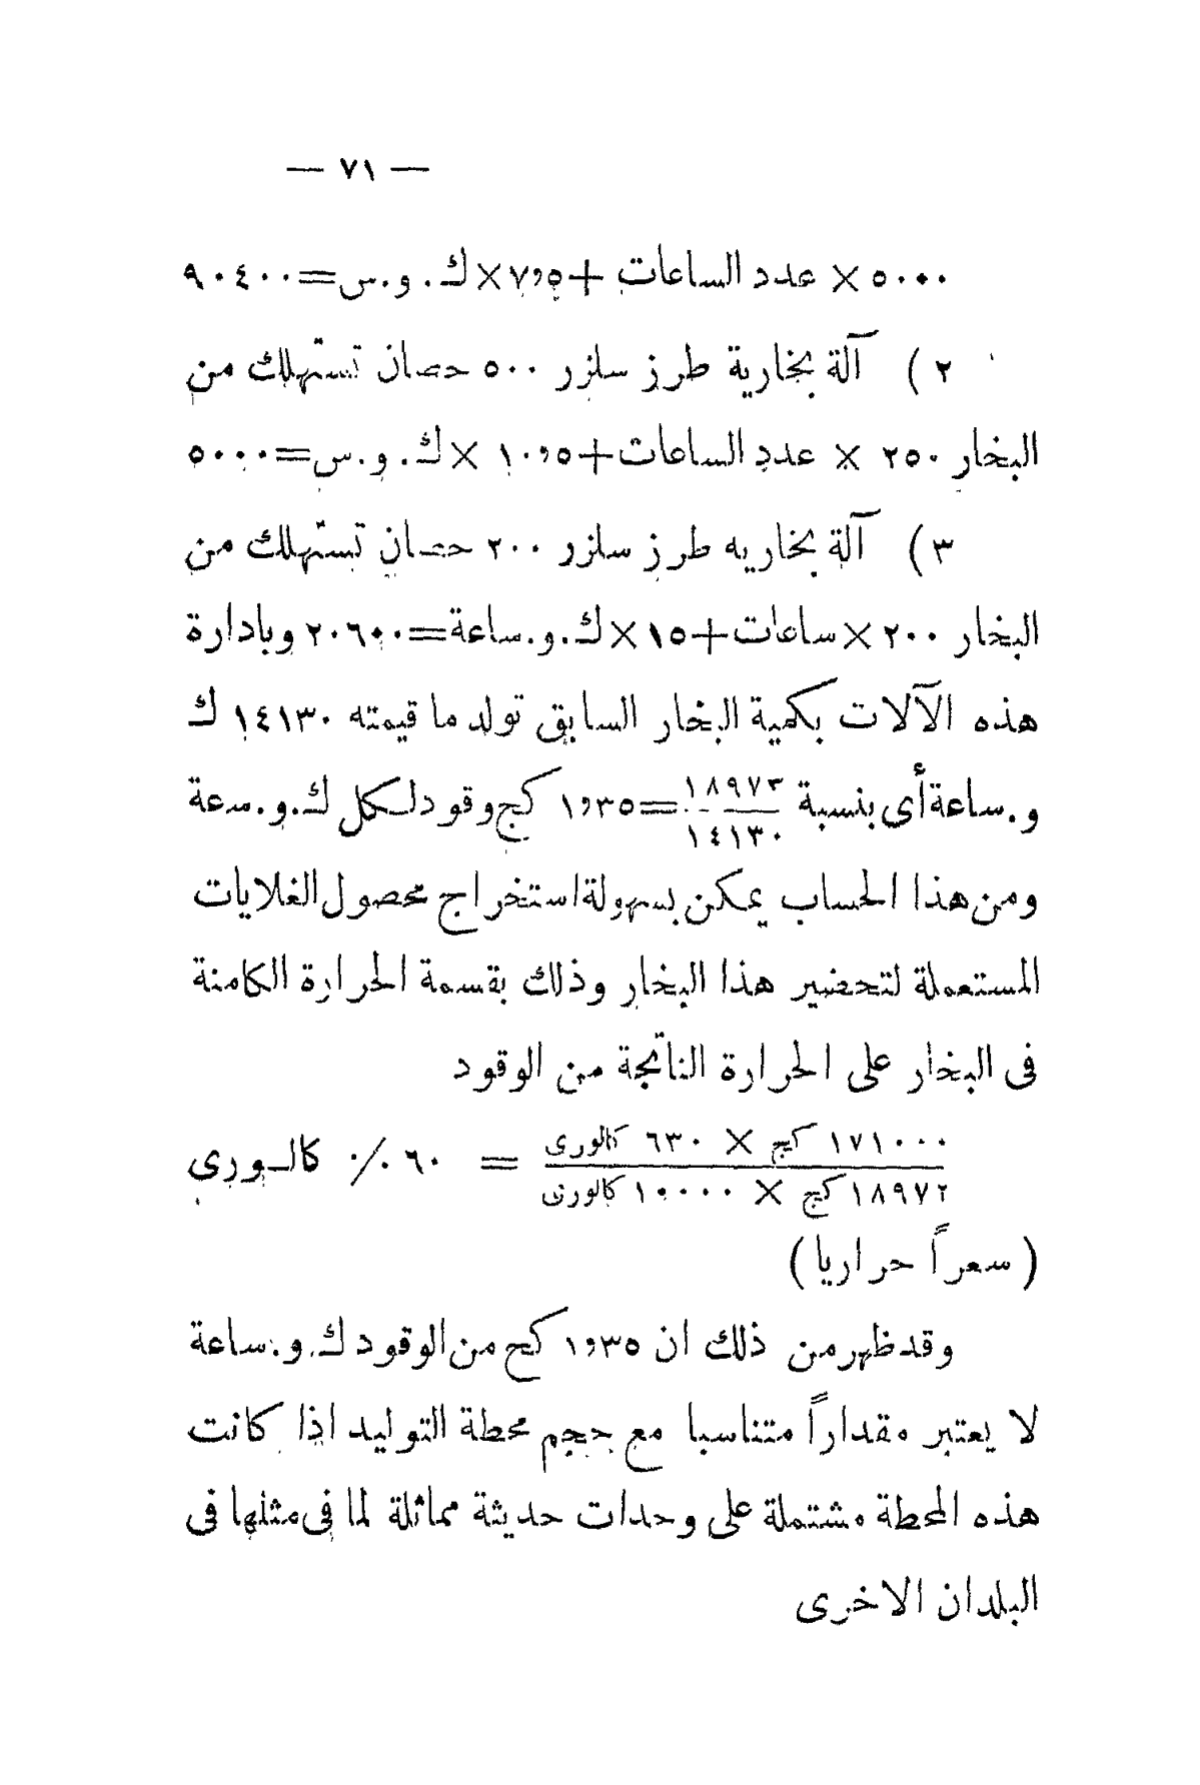 — ٧١ —
٥٠٠٠ × عدد الساعات + ٧٫٥ × ك . و . س = ٩٠٤٠٠
٢ ) آلة بخارية طرز سلزر ٥٠٠ حصان تستهلك من
البخار ٢٥٠ × عدد الساعات + ١٠٫٥ × ك . و . س = ٥٠٠٠٠
٣ ) آلة بخاريه طرز سلزر ٢٠٠ حصان تستهلك من
البخار ٢٠٠ × ساعات + ١٥ × ك . و . ساعة = ٢٠٦٠٠ وبادارة
هذه الآلات بكمية البخار السابق تولد ما قيمته ١٤١٣٠ ك
و . ساعة أى بنسبة ١٨٩٧٣/١٤١٣٠ = ١٫٣٥ كج وقود لكل ك . و . سعة
ومن هذا الحساب يمكن بسهولة استخراج محصول الغلايات
المستعملة لتحضير هذا البخار وذلك بقسمة الحرارة الكامنة
فى البخار على الحرارة الناتجة من الوقود
١٧١٠٠٠ كج × ٦٣٠ كالورى
١٨٩٧٢ كج × ١٠٠٠٠ كالورى = ٦٠ ٪ كالورى
( سعراً حراريا )
وقد ظهر من ذلك ان ١٫٣٥ كج من الوقود ك . و . ساعة
لا يعتبر مقداراً متناسبا مع حجم محطة التوليد اذا كانت
هذه المحطة مشتملة على وحدات حديثة مماثلة لما فى مثلها فى
البلدان الاخرى